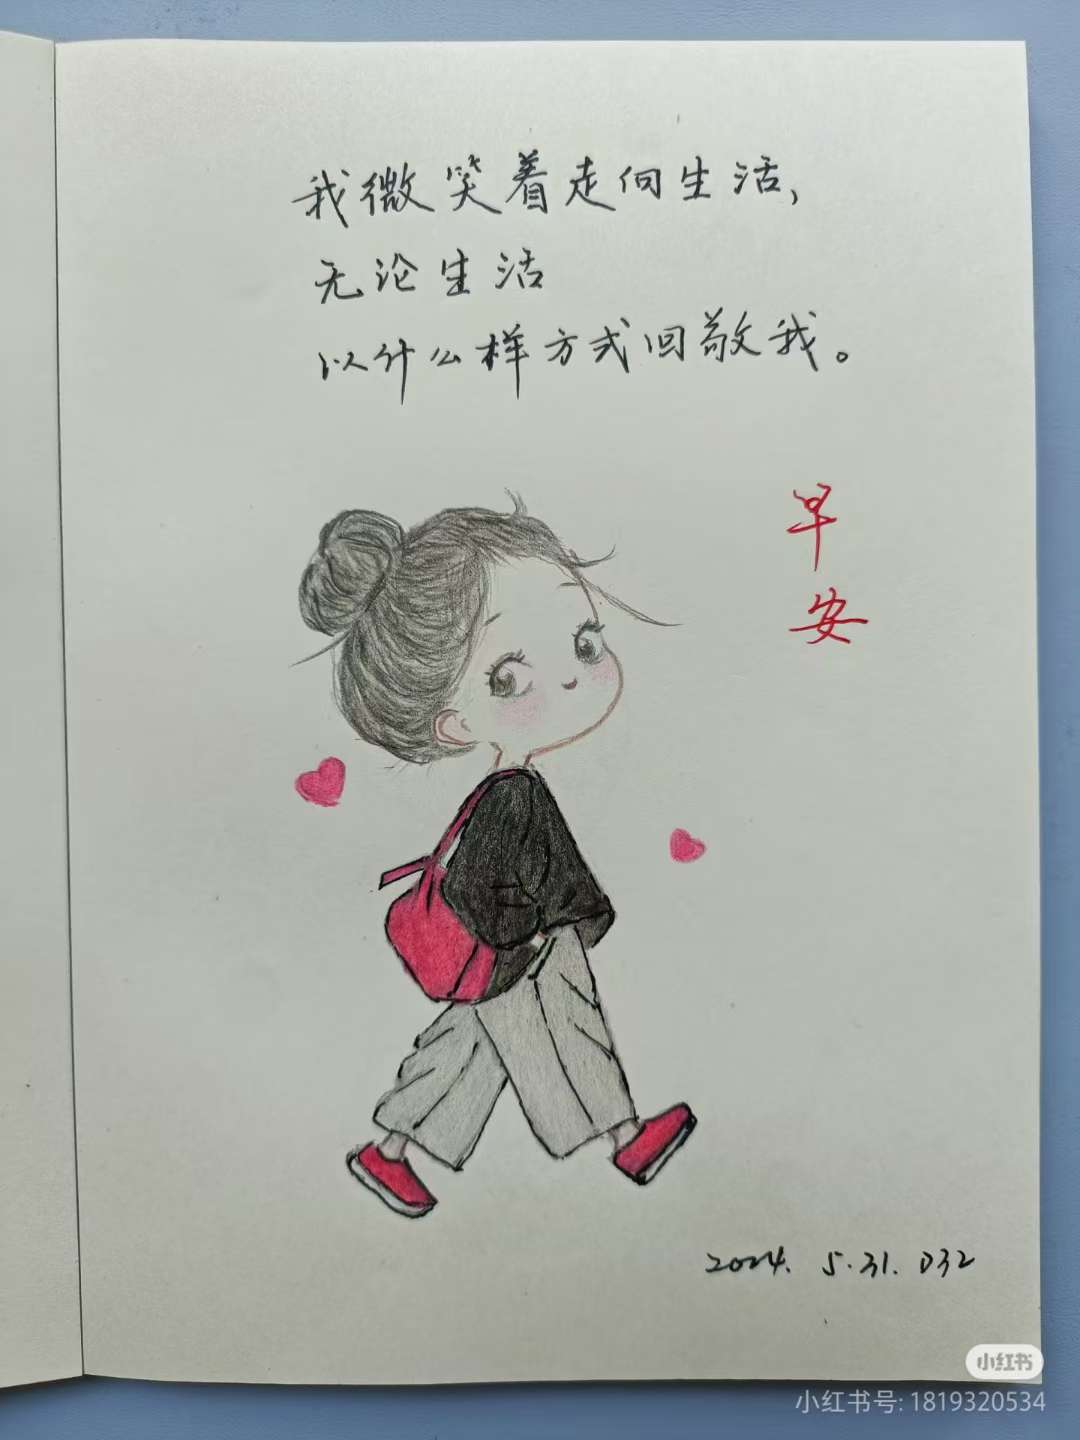 我微笑着走向生活，
无论生活
以什么样方式回敬我。
早
安
2024. 5.31. 032
小红书
小红书号: 1819320534